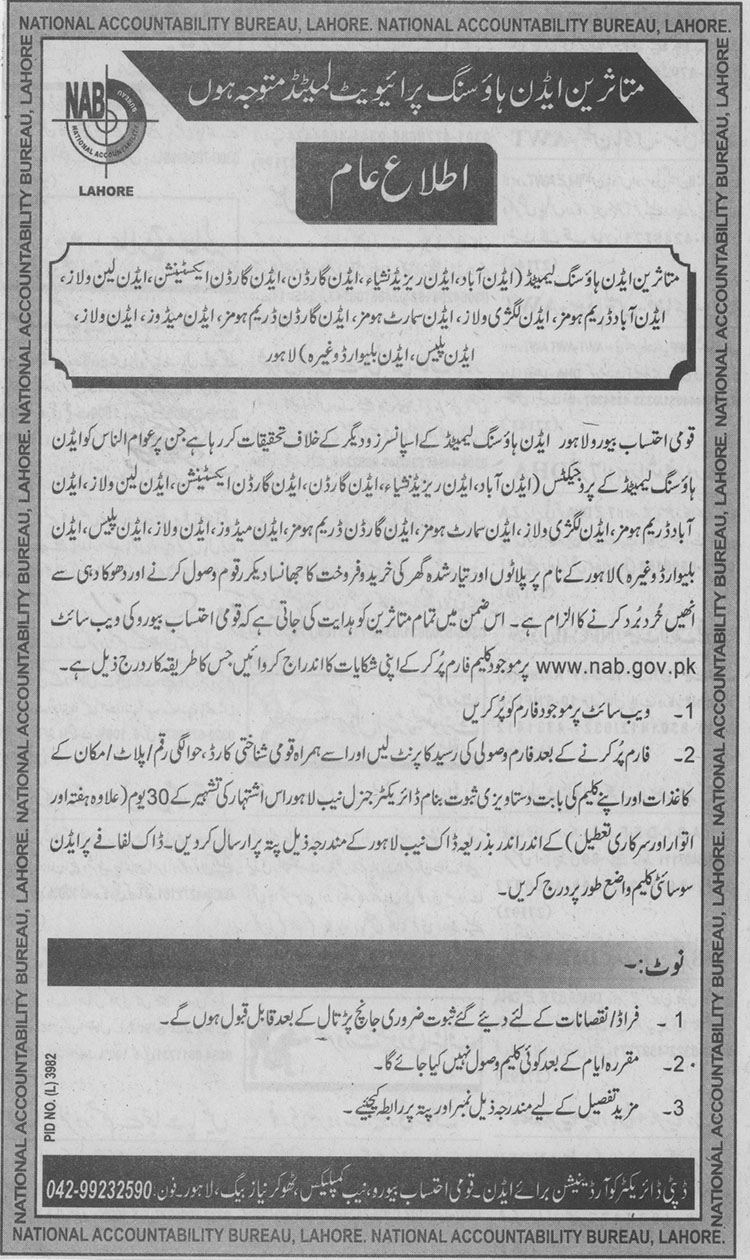 NATIONAL ACCOUNTABILITY BUREAU, LAHORE. NATIONAL ACCOUNTABILITY BUREAU, LAHORE.
متاثرین ایڈن ہاؤسنگ پرائیویٹ لمیٹڈ متوجہ ہوں
NAB
NATIONAL ACCOUNTABILITY BUREAU
LAHORE
اطلاع عام
متاثرین ایڈن ہاؤسنگ لیمیٹڈ (ایڈن آباد، ایڈن ریزیڈنشیاء، ایڈن گارڈن، ایڈن گارڈن ایکسٹینشن، ایڈن لین ولاز،
ایڈن آباد ڈریم ہومز، ایڈن لگژی ولاز، ایڈن سمارٹ ہومز، ایڈن گارڈن ڈریم ہومز، ایڈن میڈوز، ایڈن ولاز،
ایڈن پلیس، ایڈن بلیوارڈ وغیرہ) لاہور
قومی احتساب بیورو لاہور ایڈن ہاؤسنگ لیمیٹڈ کے اسپانسرز و دیگر کے خلاف تحقیقات کر رہا ہے جن پر عوام الناس کو ایڈن
ہاؤسنگ لیمیٹڈ کے پروجیکٹس (ایڈن آباد، ایڈن ریزیڈنشیاء، ایڈن گارڈن، ایڈن گارڈن ایکسٹینشن، ایڈن لین ولاز، ایڈن
آباد ڈریم ہومز، ایڈن لگژی ولاز، ایڈن سمارٹ ہومز، ایڈن گارڈن ڈریم ہومز، ایڈن میڈوز، ایڈن ولاز، ایڈن پلیس، ایڈن
بلیوارڈ وغیرہ) لاہور کے نام پر پلاٹوں اور تیار شدہ گھر کی خرید و فروخت کا جھانسا دیکر رقوم وصول کرنے اور دھوکا دہی سے
انھیں خُرد بُرد کرنے کا الزام ہے۔ اس ضمن میں تمام متاثرین کو ہدایت کی جاتی ہے کہ قومی احتساب بیورو کی ویب سائٹ
www.nab.gov.pk پر موجود کلیم فارم پُر کر کے اپنی شکایات کا اندراج کروائیں جس کا طریقہ کار درج ذیل ہے۔
1۔ ویب سائٹ پر موجود فارم کو پُر کریں
2۔ فارم پُر کرنے کے بعد فارم وصولی کی رسید کا پرنٹ لیں اور اسے ہمراہ قومی شناختی کارڈ، حوالگی رقم/پلاٹ/مکان کے
کاغذات اور اپنے کلیم کی بابت دستاویزی ثبوت بنام ڈائریکٹر جنرل نیب لاہور اس اشتہار کی تشہیر کے 30 یوم (علاوہ ہفتہ اور
اتوار اور سرکاری تعطیل) کے اندر اندر بذریعہ ڈاک نیب لاہور کے مندرجہ ذیل پتہ پر ارسال کر دیں۔ ڈاک لفافے پر ایڈن
سوسائٹی کلیم واضع طور پر درج کریں۔
نوٹ:۔
1۔ فراڈ/نقصانات کے لئے دیئے گئے ثبوت ضروری جانچ پڑتال کے بعد قابل قبول ہوں گے۔
2۔ مقررہ ایام کے بعد کوئی کلیم وصول نہیں کیا جائے گا۔
3۔ مزید تفصیل کے لیے مندرجہ ذیل نمبر اور پتہ پر رابطہ کیجئیے۔
PID NO. (L) 3982
ڈپٹی ڈائریکٹر کوآرڈینیشن برائے ایڈن۔ قومی احتساب بیورو، نیب کمپلیکس، ٹھوکر نیاز بیگ، لاہور۔ فون: 042-99232590
NATIONAL ACCOUNTABILITY BUREAU, LAHORE. NATIONAL ACCOUNTABILITY BUREAU, LAHORE.
NATIONAL ACCOUNTABILITY BUREAU, LAHORE. NATIONAL ACCOUNTABILITY BUREAU, LAHORE. NATIONAL ACCOUNTABILITY BUREAU, LAHORE
NATIONAL ACCOUNTABILITY BUREAU, LAHORE. NATIONAL ACCOUNTABILITY BUREAU, LAHORE. NATIONAL ACCOUNTABILITY BUREAU, LAHORE